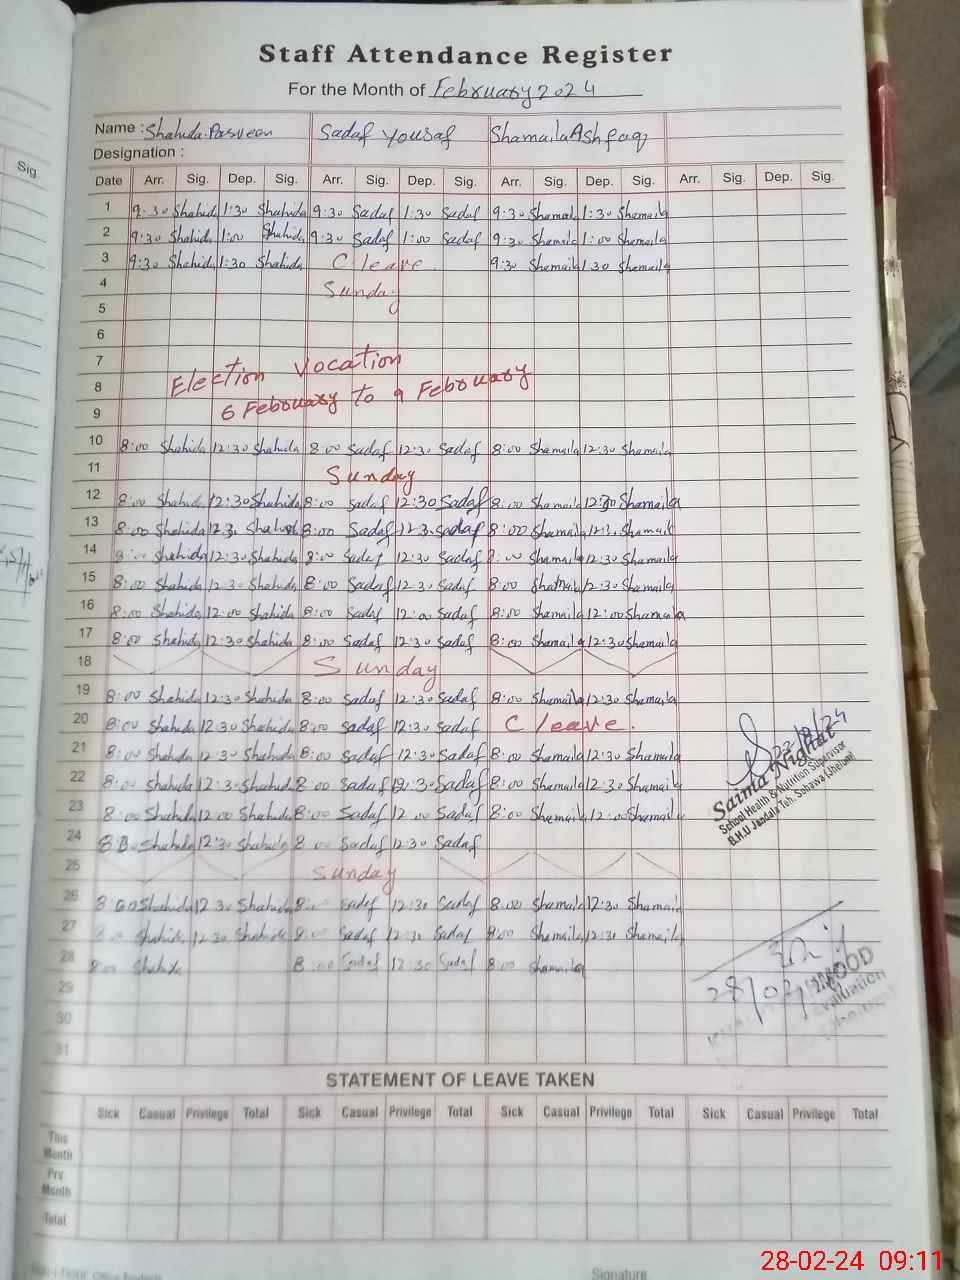 Staff Attendance Register
For the Month of February 2024
Name : Shahida Parveen Sadaf Yousaf Shamaila Ashfaq
Designation :
Sig.
Date Arr. Sig. Dep. Sig. Arr. Sig. Dep. Sig. Arr. Sig. Dep. Sig. Arr. Sig. Dep. Sig.
1 9:30 Shahida 1:30 Shahida 9:30 Sadaf 1:30 Sadaf 9:30 Shamaila 1:30 Shamaila
2 9:30 Shahida 1:00 Shahida 9:30 Sadaf 1:00 Sadaf 9:30 Shamaila 1:00 Shamaila
3 9:30 Shahida 1:30 Shahida C leave. 9:30 Shamaila 1:30 Shamaila
4 Sunday
5
6
7 Election Vocation
8 6 February to 9 February
9
10 8:00 Shahida 12:30 Shahida 8:00 Sadaf 12:30 Sadaf 8:00 Shamaila 12:30 Shamaila
11 Sunday
12 8:00 Shahida 12:30 Shahida 8:00 Sadaf 12:30 Sadaf 8:00 Shamaila 12:30 Shamaila
13 8:00 Shahida 12:30 Shahida 8:00 Sadaf 12:30 Sadaf 8:00 Shamaila 12:30 Shamaila
14 8:00 Shahida 12:30 Shahida 8:00 Sadaf 12:30 Sadaf 8:00 Shamaila 12:30 Shamaila
15 8:00 Shahida 12:30 Shahida 8:00 Sadaf 12:30 Sadaf 8:00 Shamaila 12:30 Shamaila
16 8:00 Shahida 12:00 Shahida 8:00 Sadaf 12:00 Sadaf 8:00 Shamaila 12:00 Shamaila
17 8:00 Shahida 12:30 Shahida 8:00 Sadaf 12:30 Sadaf 8:00 Shamaila 12:30 Shamaila
18 Sunday
19 8:00 Shahida 12:30 Shahida 8:00 Sadaf 12:30 Sadaf 8:00 Shamaila 12:30 Shamaila
20 8:00 Shahida 12:30 Shahida 8:00 Sadaf 12:30 Sadaf C leave.
21 8:00 Shahida 12:30 Shahida 8:00 Sadaf 12:30 Sadaf 8:00 Shamaila 12:30 Shamaila
22 8:00 Shahida 12:30 Shahida 8:00 Sadaf 12:30 Sadaf 8:00 Shamaila 12:30 Shamaila
23 8:00 Shahida 12:00 Shahida 8:00 Sadaf 12:00 Sadaf 8:00 Shamaila 12:00 Shamaila
24 8:00 Shahida 12:30 Shahida 8:00 Sadaf 12:30 Sadaf
Saima Nighat
School Health & Nutrition Supervisor
B.H.U Jandala Teh. Sohawa (Jhelum)
25 Sunday
26 8:00 Shahida 12:30 Shahida 8:00 Sadaf 12:30 Sadaf 8:00 Shamaila 12:30 Shamaila
27 8:00 Shahida 12:30 Shahida 8:00 Sadaf 12:30 Sadaf 8:00 Shamaila 12:30 Shamaila
28 8:00 Shahida 8:00 Sadaf 12:30 Sadaf 8:00 Shamaila
29
30
31
28/02/
Evaluation
STATEMENT OF LEAVE TAKEN
Sick Casual Privilege Total Sick Casual Privilege Total Sick Casual Privilege Total Sick Casual Privilege Total
This Month
Prv. Month
Total
Signature
28-02-24 09:11